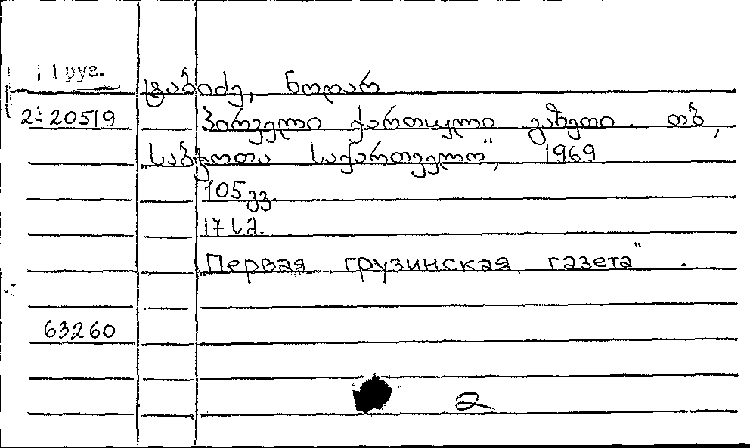 ტაბიძე, ნოდარ
2-20519 პირველი ქართული გაზეთი. თბ,
საბჭოთა საქართველო", 1969
105 გვ.
17 სმ.
"Первая грузинская газета".
63260
2